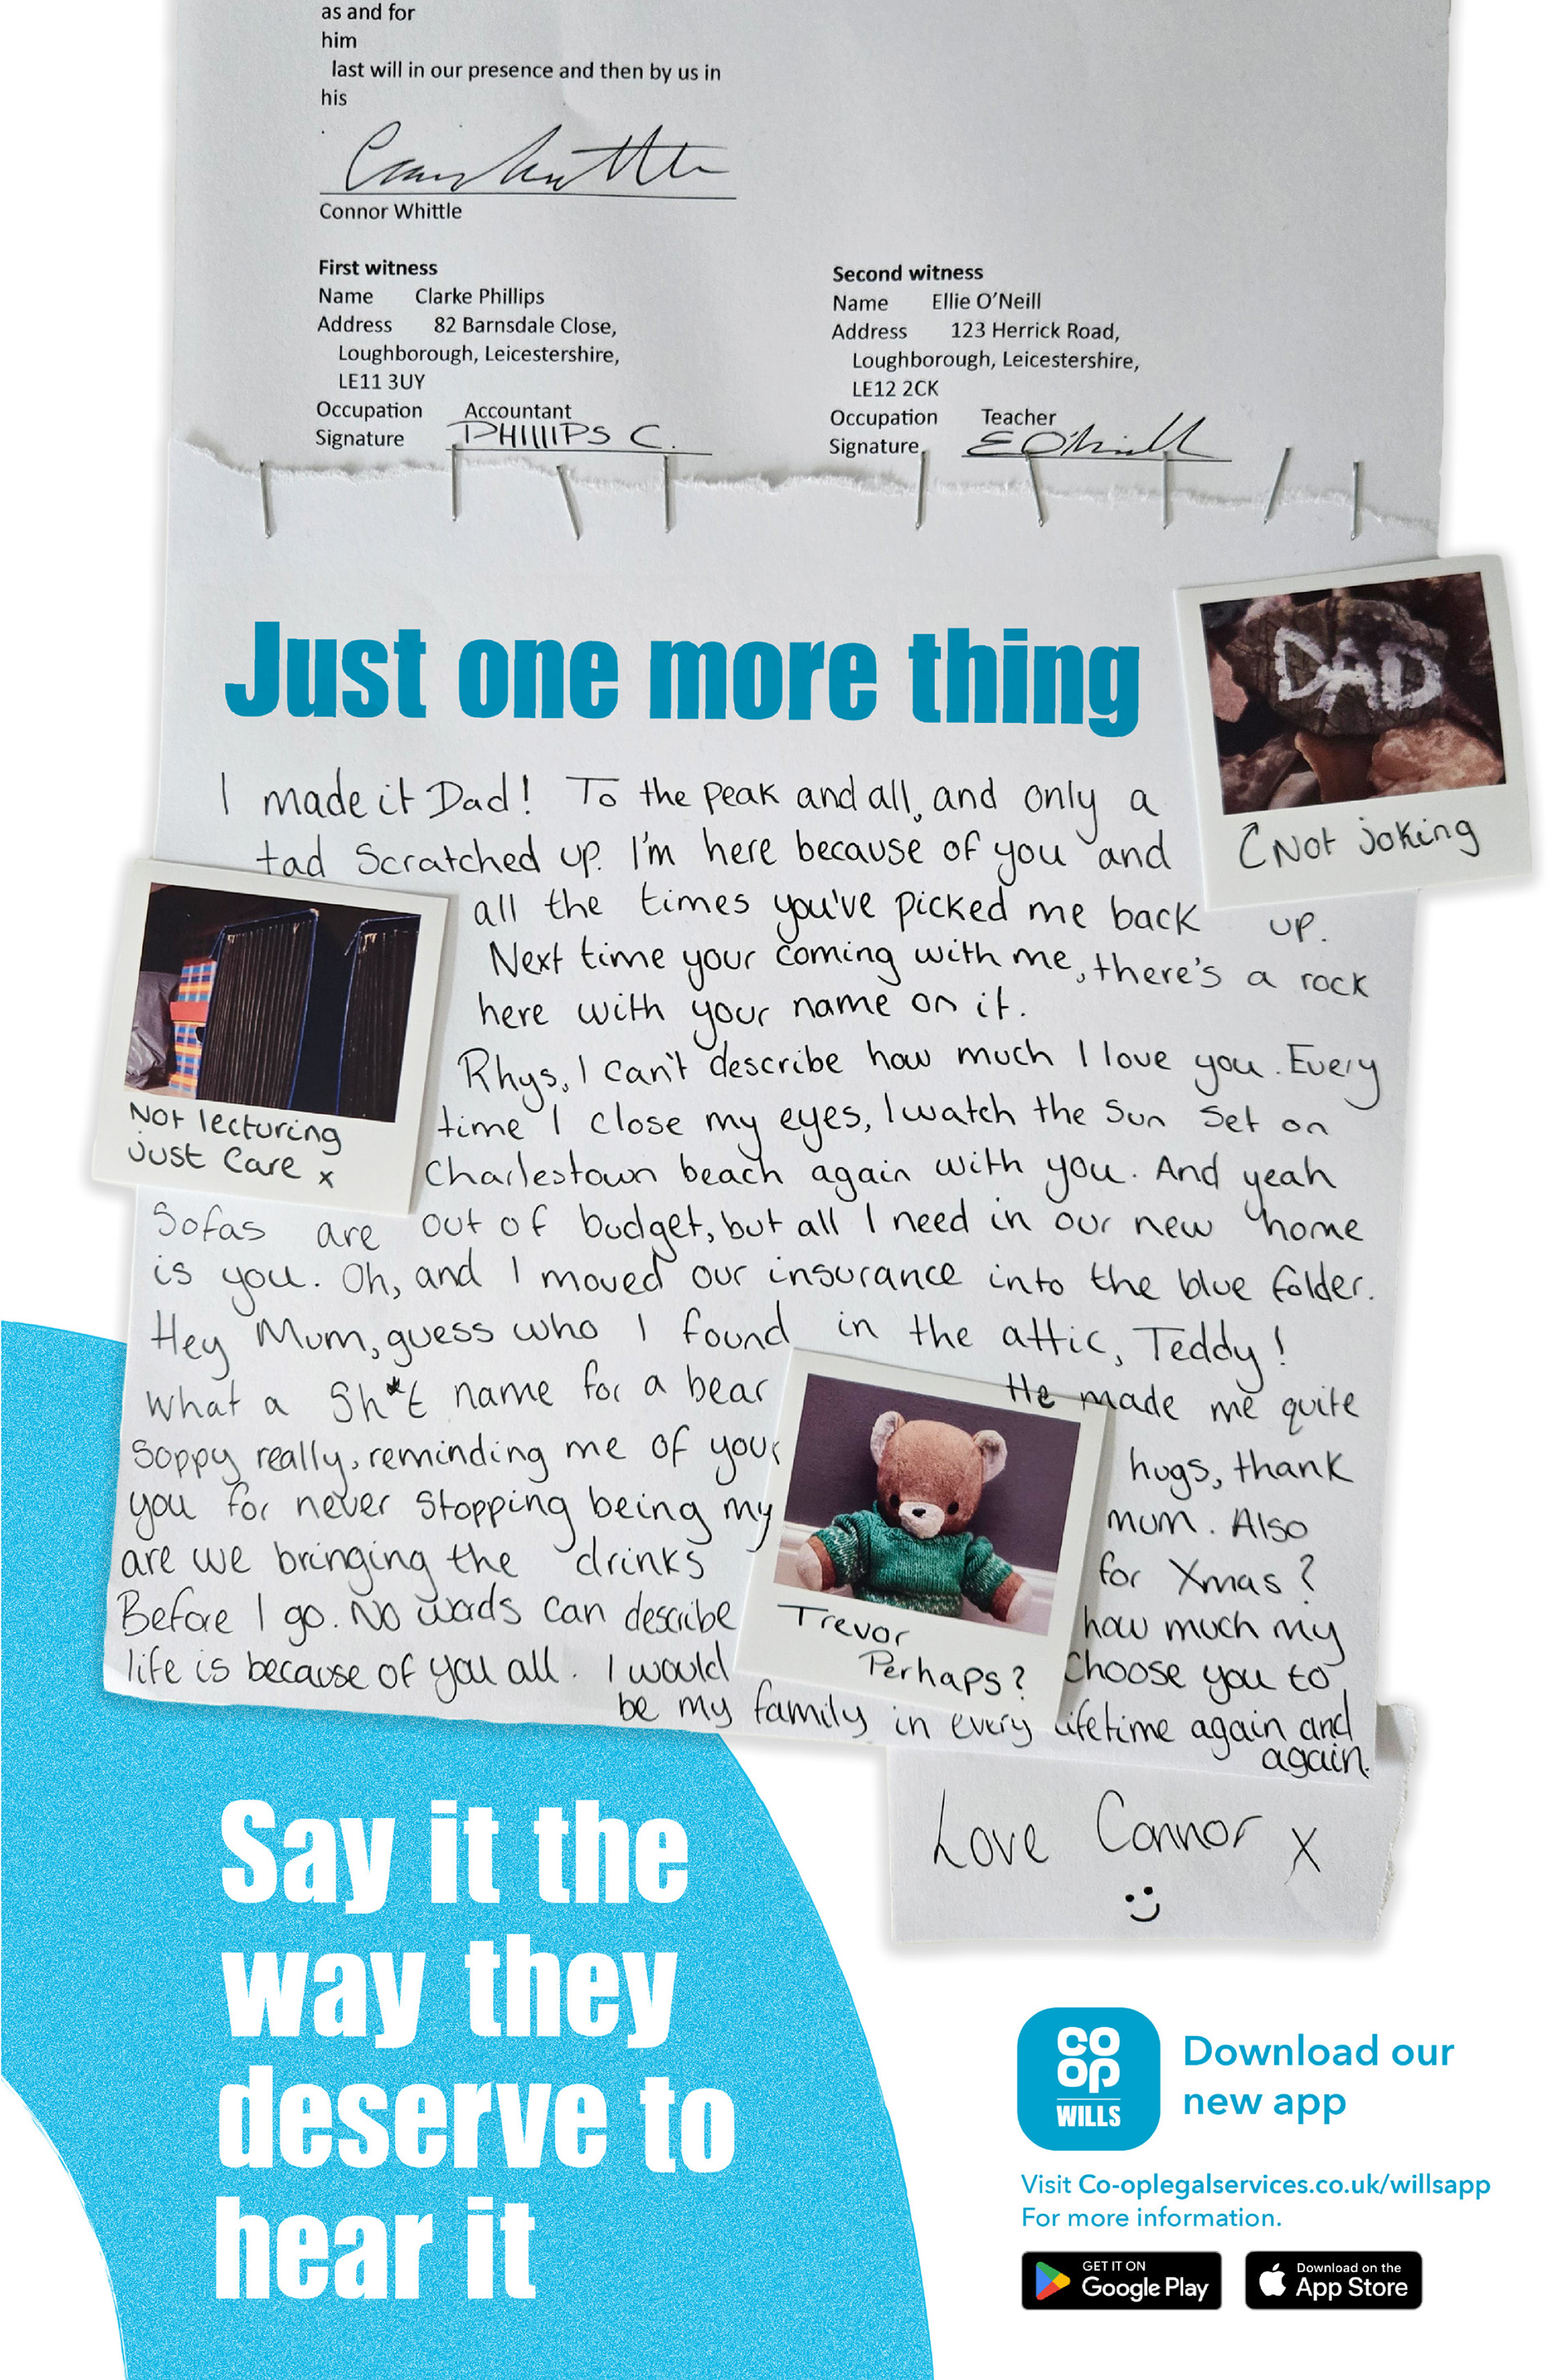 as and for
him
last will in our presence and then by us in
his
.
Connor Whittle
First witness
Name Clarke Phillips
Address 82 Barnsdale Close,
Loughborough, Leicestershire,
LE11 3UY
Occupation Accountant
Signature PHIllIPS C.
Second witness
Name Ellie O'Neill
Address 123 Herrick Road,
Loughborough, Leicestershire,
LE12 2CK
Occupation Teacher
Signature E O'Neill
Just one more thing
DAD
Not joking
I made it Dad! To the peak and all, and only a
tad scratched up. I'm here because of you and
all the times you've picked me back up.
Next time your coming with me, there's a rock
here with your name on it.
Rhys, I can't describe how much I love you. Every
time I close my eyes, I watch the sun set on
Charlestown beach again with you. And yeah
Sofas are out of budget, but all I need in our new home
is you. Oh, and I moved our insurance into the blue folder.
Not lecturing
just care x
Hey Mum, guess who I found in the attic, Teddy!
What a Sh*t name for a bear He made me quite
Soppy really, reminding me of your hugs, thank
you for never stopping being my mum. Also
are we bringing the drinks for Xmas?
Before I go. No words can describe how much my
life is because of you all. I would choose you to
be my family in every lifetime again and
again.
Trevor
Perhaps?
Love Connor x
Say it the
way they
deserve to
hear it
CO
OP
WILLS
Download our
new app
Visit Co-oplegalservices.co.uk/willsapp
For more information.
GET IT ON
Google Play
Download on the
App Store